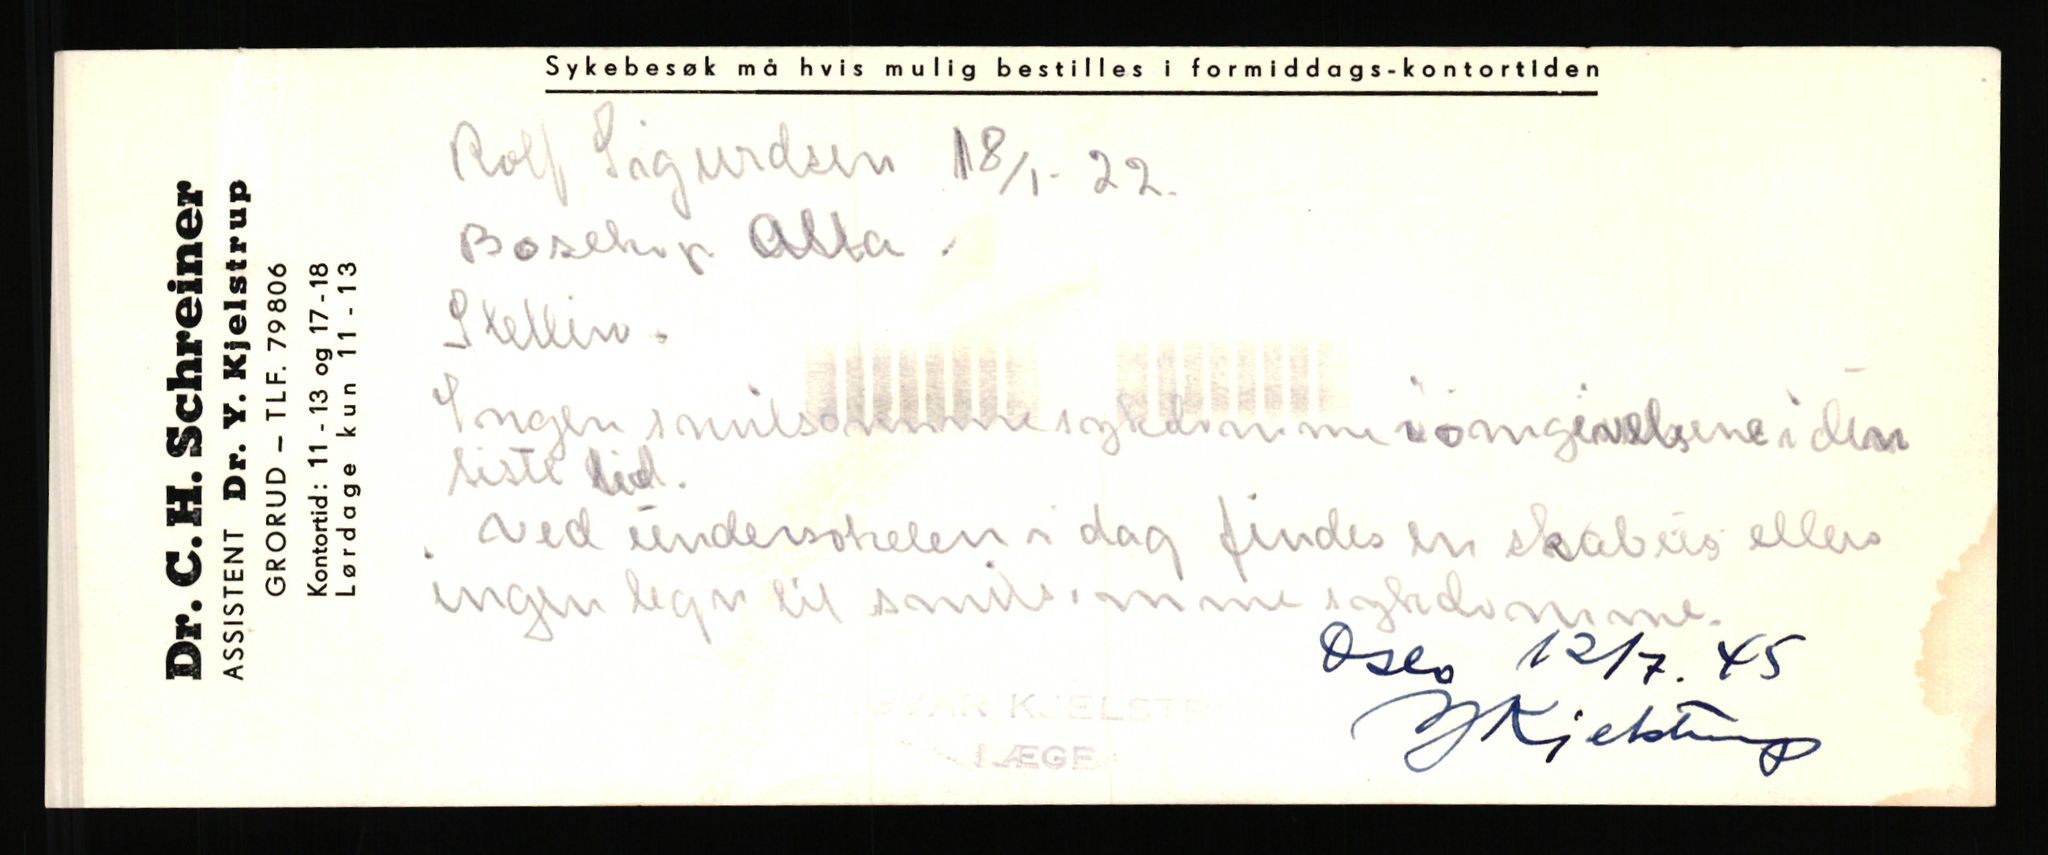 Sykebesøk må hvis mulig bestilles i formiddags-kontortiden
Dr. C. H. Schreiner
ASSISTENT Dr. Y. Kjelstrup
GRORUD – TLF. 79806
Kontortid: 11-13 og 17-18
Lørdage kun 11-13
Rolf Sigurdsen 18/1-22.
Bosekop Alta.
Stettin.
Ingen smitsomme sykdomme i omgivelsene i den
siste tid.
Ved undersøkelsen i dag findes en skabiis ellers
ingen tegn til smitsomme sykdomme.
Oslo 12/7.45
YKjelstrup
NGVAR KJELSTR
LÆGE